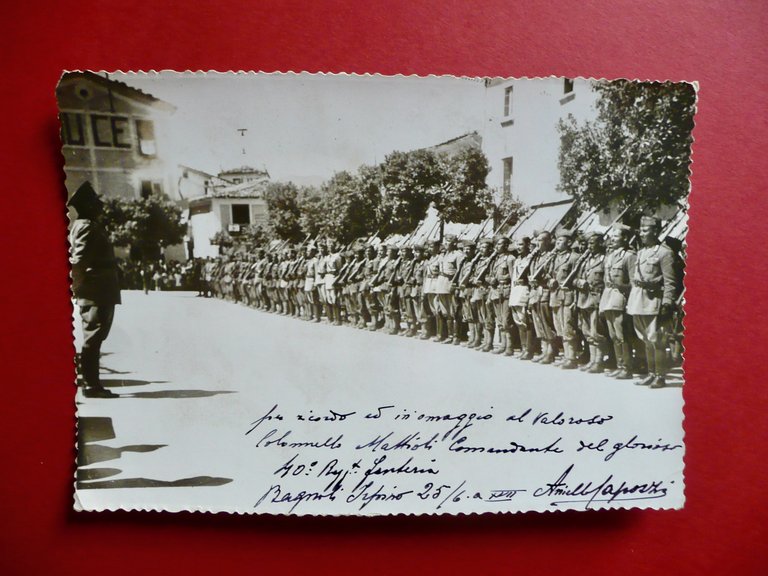 DUCE
per ricordo ed in omaggio al valoroso
Colonnello Mattioli Comandante del glorioso
40º Regt. fanteria
Bagnoli Irpino 25/6. a XVII Aniello Capozzi